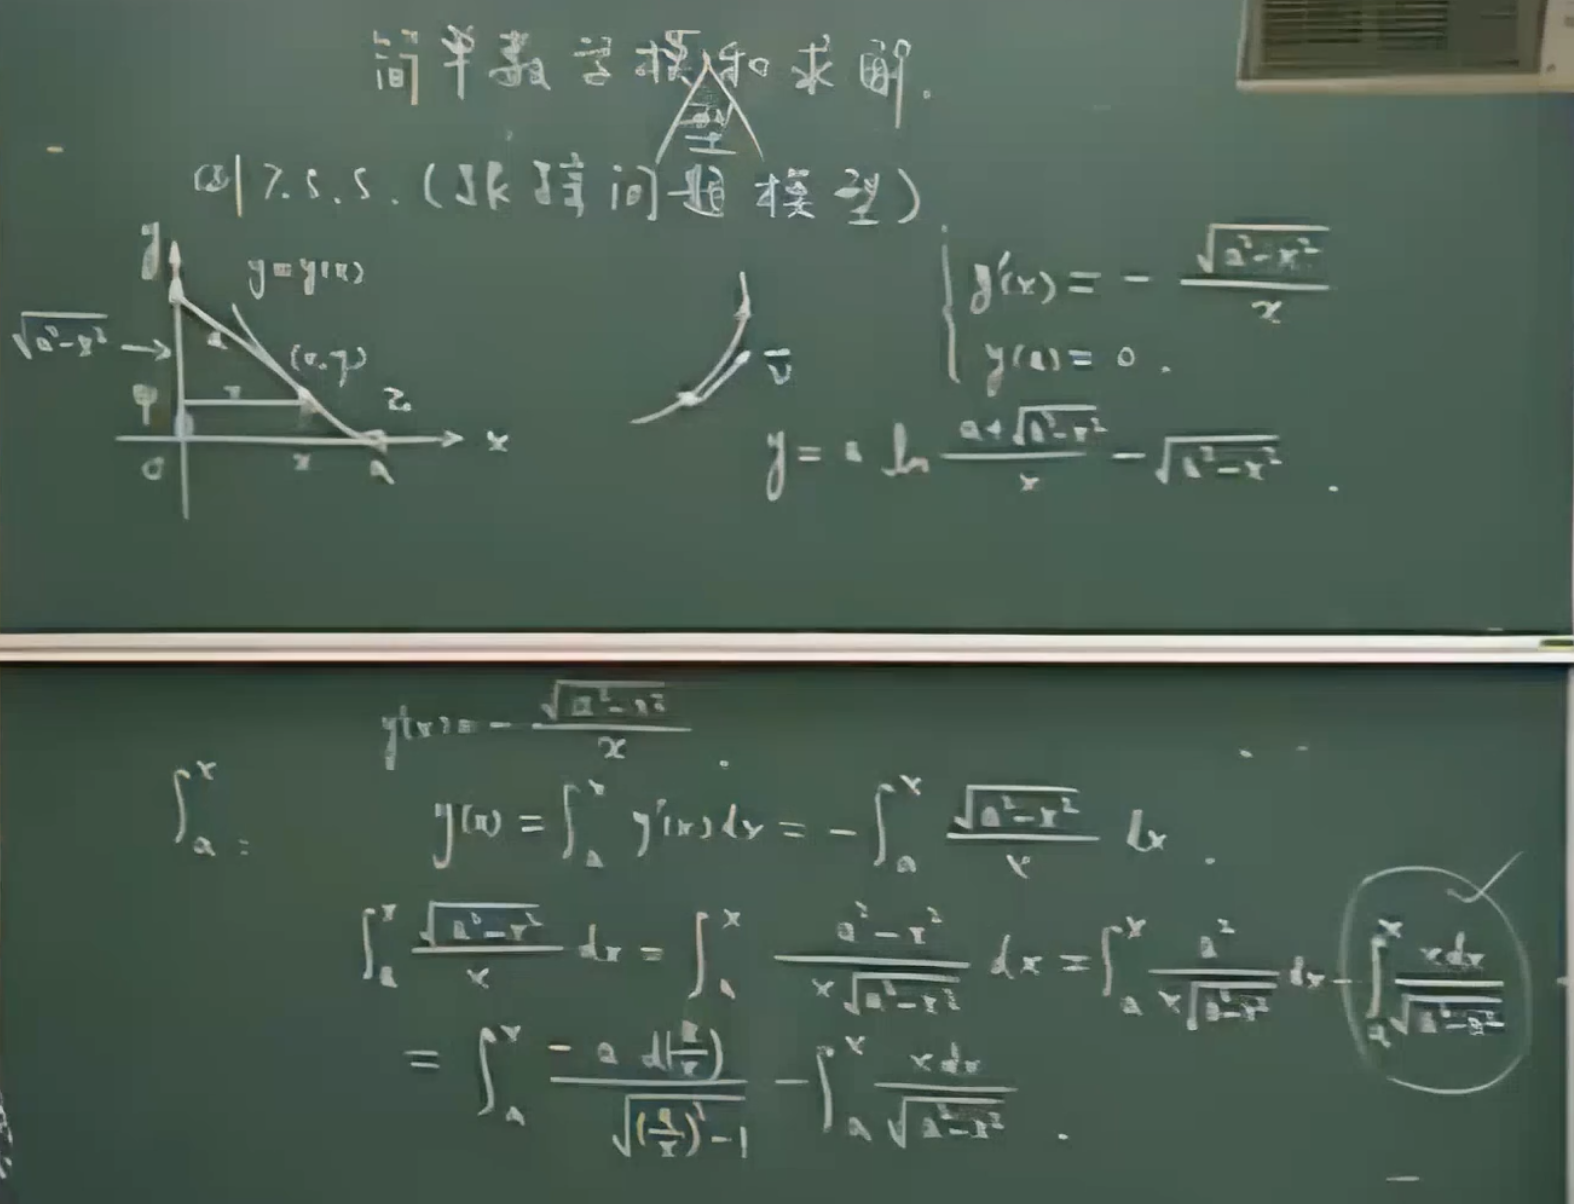 简单数学模型和求解.
例7.5.5.(跟踪问题模型)
y
y=y(x)
√(a²-x²) →
a
(x,y)
x
O
x
a
x
v̄
{ y'(x) = - √(a²-x²)/x
y(a) = 0.
y = a ln (a+√(a²-x²))/x - √(a²-x²).
y'(x) = - √(a²-x²)/x.
∫ₐˣ:
y(x) = ∫ₐˣ y'(x)dx = -∫ₐˣ √(a²-x²)/x dx.
∫ₐˣ √(a²-x²)/x dx = ∫ₐˣ (a²-x²)/(x√(a²-x²)) dx = ∫ₐˣ a²/(x√(a²-x²)) dx - ∫ₐˣ xdx/√(a²-x²)
= ∫ₐˣ -a d(a/x)/√((a/x)²-1) - ∫ₐˣ xdx/√(a²-x²).